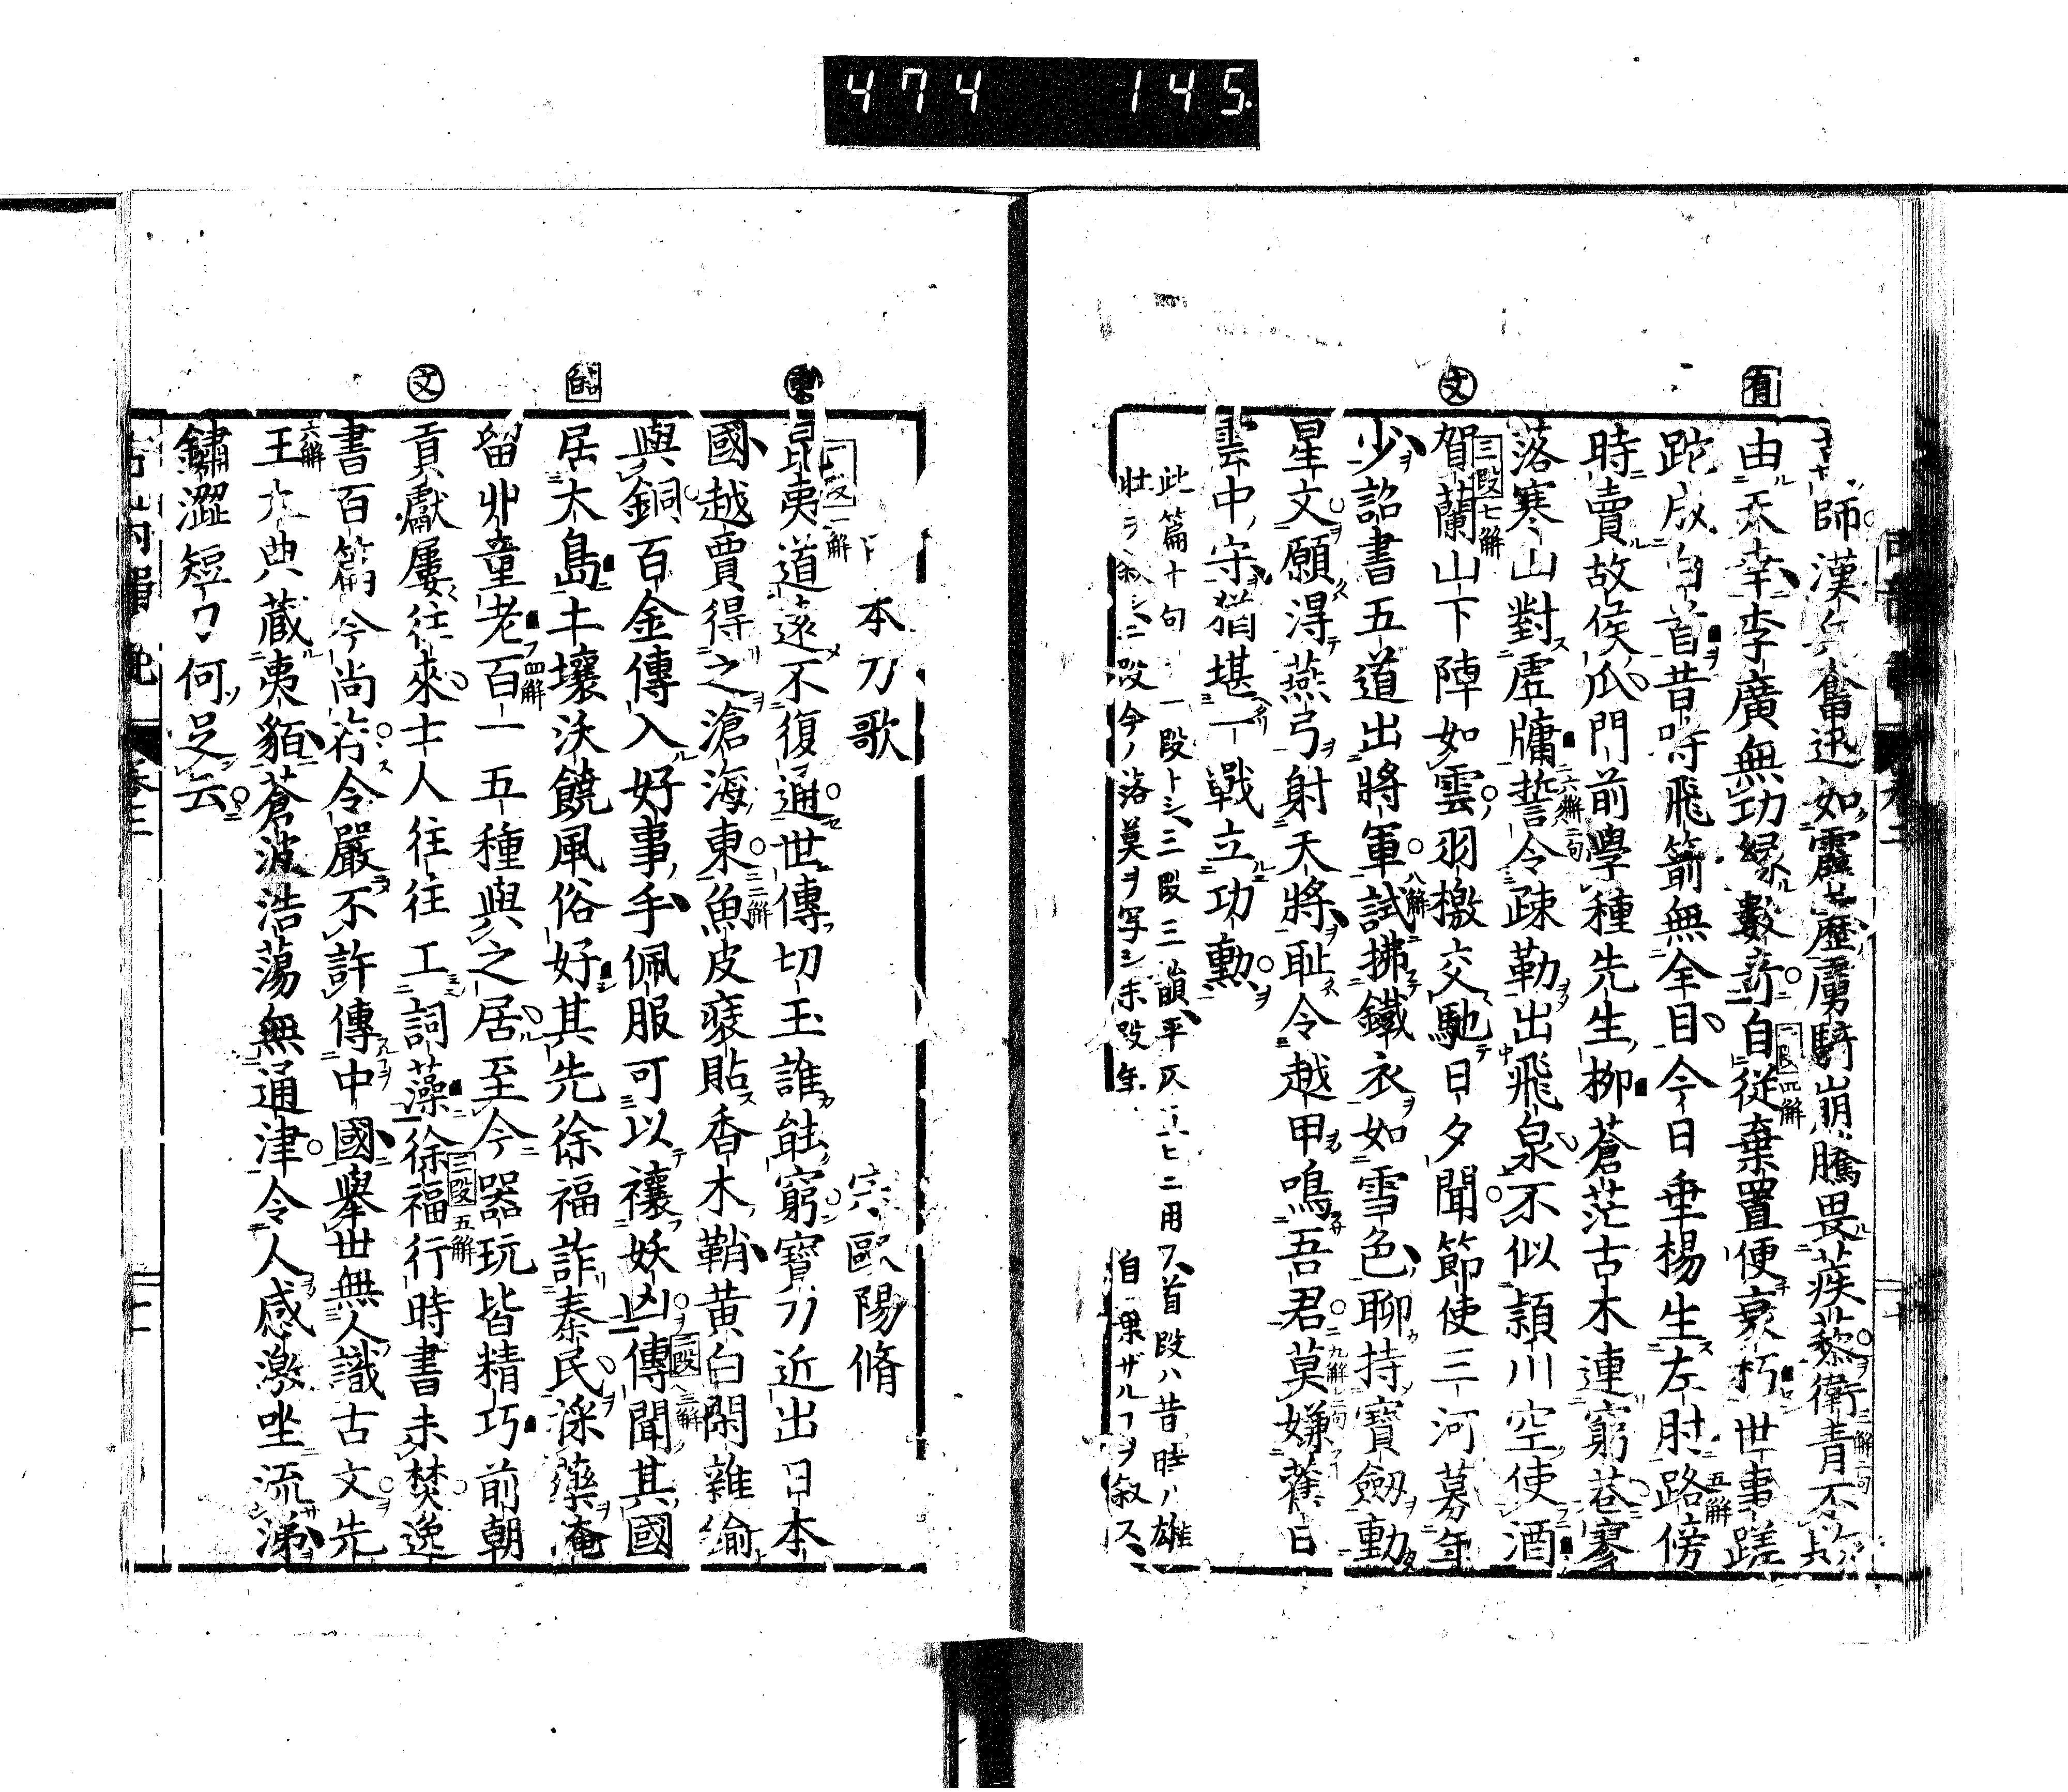 474 145
師漢兵奮迅如霹靂虜騎崩騰畏蒺藜衛青不敗
由天幸李廣無功緣數奇自從棄置便衰朽世事蹉
跎成白首昔時飛箭無全目今日垂楊生左肘路傍
時賣故侯瓜門前學種先生柳蒼茫古木連窮巷寥
落寒山對虛牖誓令疎勒出飛泉不似潁川空使酒
賀蘭山下陣如雲羽檄交馳日夕聞節使三河募年
少詔書五道出將軍試拂鐵衣如雪色聊持寶劔動
星文願得燕弓射天將恥令越甲鳴吾君莫嫌舊日
雲中守猶堪一戰立功勳
此篇十句一段トシ三段三韻平仄互ヒニ用フ首段ハ昔時ノ雄
壮ヲ叙シ二段今ノ落莫ヲ写シ末段年自棄ザルヿヲ叙ス
有
文
本刀歌 宋歐陽脩
昆夷道遠不復通世傳切玉誰能窮寶刀近出日本
國越賈得之滄海東魚皮裝貼香木鞘黄白閑雜鍮
與銅百金傳入好事手佩服可以禳妖凶傳聞其國
居大島土壤沃饒風俗好其先徐福詐秦民採藥淹
留丱童老百工五種與之居至今器玩皆精巧前朝
貢獻屢往來士人往往工詞藻徐福行時書未焚逸
書百篇今尚存令嚴不許傳中國舉世無人識古文先
王大典藏夷貊蒼波浩蕩無通津令人感激坐流涕
鏽澀短刀何足云
東
文
卷三